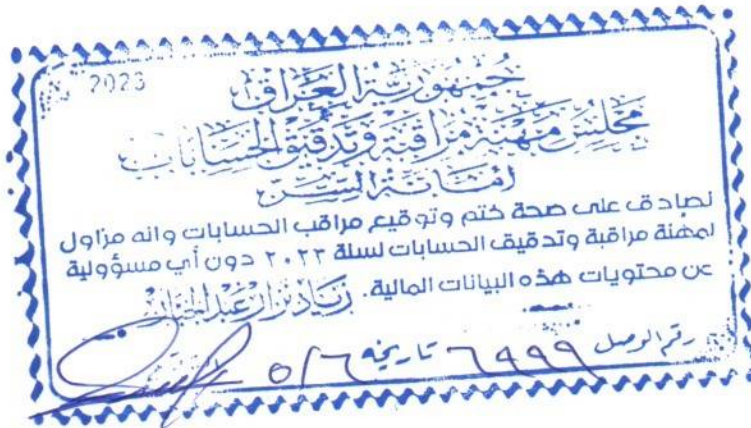 2023
جمهورية العراق
مجلس مهنة مراقبة وتدقيق الحسابات
امانة السر
نصادق على صحة ختم وتوقيع مراقب الحسابات وانه مزاول
لمهنة مراقبة وتدقيق الحسابات لسنة ٢٠٢٣ دون أي مسؤولية
عن محتويات هذه البيانات المالية. زياد نزار عبد الجبار
رقم الوصل ٦٩٩٩ تاريخه ٥/٦